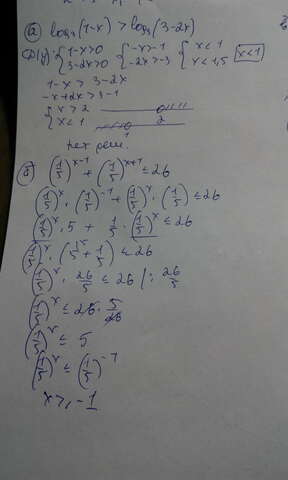 а) log₃(1-x) > log₃(3-2x)
D(y): { 1-x>0 { -x>-1 { x<1
3-2x>0 -2x>-3 x<1,5 x<1
1-x > 3-2x
-x+2x>3-1
{ x>2
x<1 1 2
нет реш.
б) (1/5)^(x-1) + (1/5)^(x+1) ≤ 26
(1/5)^x · (1/5)^(-1) + (1/5)^x · (1/5) ≤ 26
(1/5)^x · 5 + 1/5 · (1/5)^x ≤ 26
(1/5)^x · (5 + 1/5) ≤ 26
(1/5)^x · 26/5 ≤ 26 | : 26/5
(1/5)^x ≤ 26 · 5/26
(1/5)^x ≤ 5
(1/5)^x ≤ (1/5)^(-1)
x ≥ -1